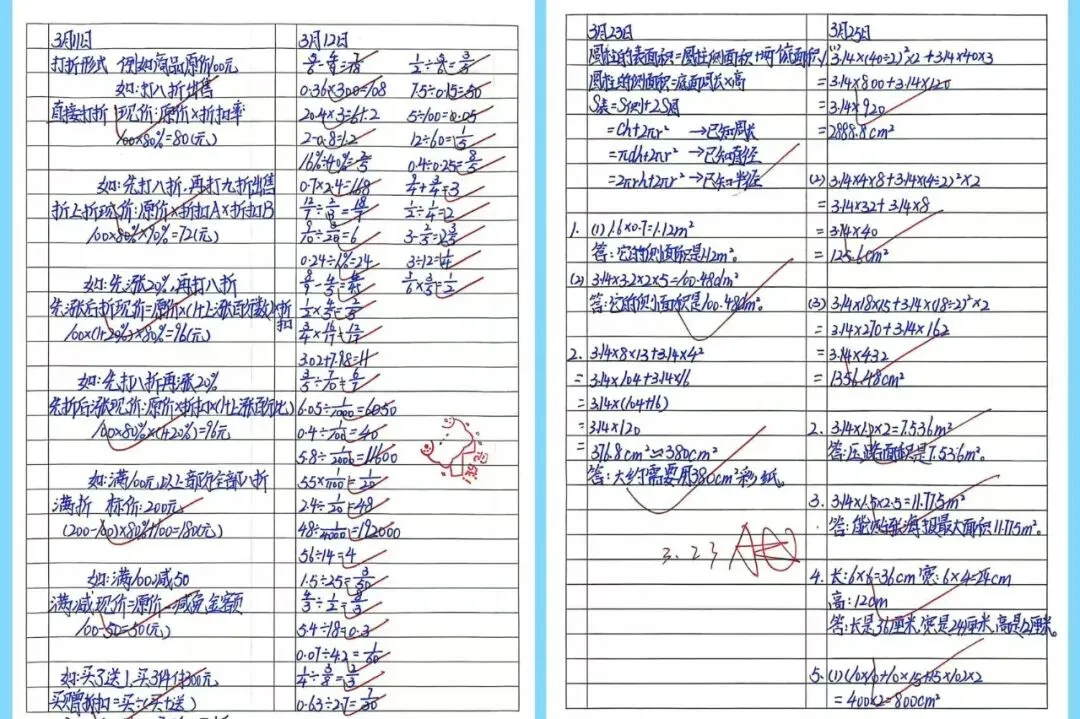 3月11日
打折形式 例如商品原价100元
如:打八折出售
直接打折 现价=原价×折扣率
100×80%=80(元)
如:先打八折,再打九折出售
折上折 现价:原价×折扣A×折扣B
100×80%×90%=72(元)
如:先涨20%,再打八折
先涨后折 现价=原价×(1+上涨百分数)×折扣
100×(1+20%)×80%=96(元)
如:先打八折再涨20%
先折后涨 现价:原价×折扣×(1+上涨百分比)
100×80%×(1+20%)=96元
如:满100元,以上部分全部八折
满折 标价:200元
(200-100)×80%+100=180(元)
如:满100减50
满减 现价=原价-减免金额
100-50=50(元)
如:买了送1,买3件付300元,
买赠 折扣=买÷(买+送)
3月12日
0.36×300=108 7.5÷0.15=50
20.4×3=61.2 5÷100=0.05
2-0.8=1.2 12÷60=1/5
16%÷40%=2/5 0.4÷0.25=8/5
0.24÷1%=24 3÷12=1/4
3.02+7.98=11
6.05÷1/1000=6050
0.4÷1/100=40
5.8÷1/2000=11600
2.4÷1/20=48
48÷1/4000=192000
56÷14=4
1.5÷25=3/50
5.4÷18=0.3
0.07÷4.2=1/60
0.63÷2.7=7/30
3月23日
圆柱的表面积=圆柱侧面积+两个底面积
圆柱的侧面积=底面周长×高
S表=S侧+2S底
=Ch+2πr² →已知周长
=πdh+2πr² →已知直径
=2πrh+2πr² →已知半径
1. (1) 1.6×0.7=1.12m²
答:它的侧面积是1.12m²。
(2) 3.14×3.2×2×5=100.48dm²
答:它的侧面积是100.48dm²。
2. 3.14×8×13+3.14×4²
= 3.14×104+3.14×16
= 3.14×(104+16)
= 3.14×120
= 376.8cm²≈380cm²
答:大约需要用380cm²彩纸。
3.23
3月25日
(1) 3.14×(40÷2)²×2+3.14×40×3
= 3.14×800+3.14×120
= 3.14×920
= 2888.8cm²
(2) 3.14×4×8+3.14×(4÷2)²×2
= 3.14×32+3.14×8
= 3.14×40
= 125.6cm²
(3) 3.14×18×15+3.14×(18÷2)²×2
= 3.14×270+3.14×162
= 3.14×432
= 1356.48cm²
2. 3.14×1.2×2=7.536m²
答:压路面积是7.536m²。
3. 3.14×1.5×2.5=11.775m²
答:能贴张海报最大面积11.775m²。
4. 长:6×6=36cm 宽:6×4=24cm
高:12cm
答:长是36厘米,宽是24厘米,高是12厘米。
5. (1)(10×10+10×15+15×10)×2
= 400×2=800cm²